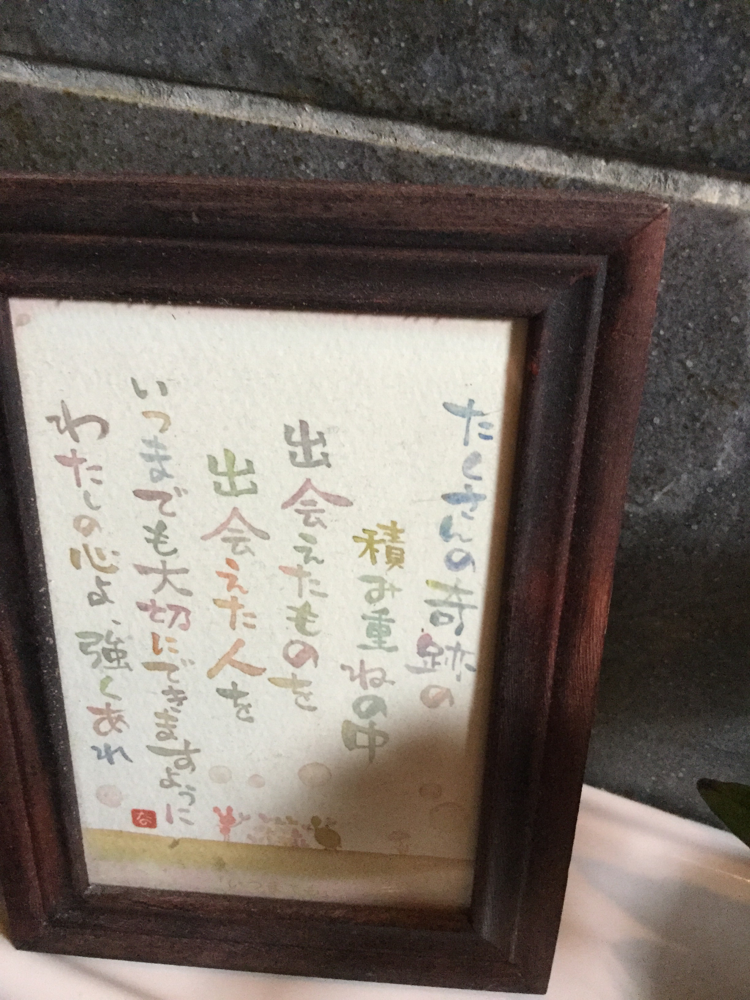 たくさんの奇跡の
積み重ねの中
出会えたものを
出会えた人を
いつまでも大切にできますように
わたしの心よ、強くあれ